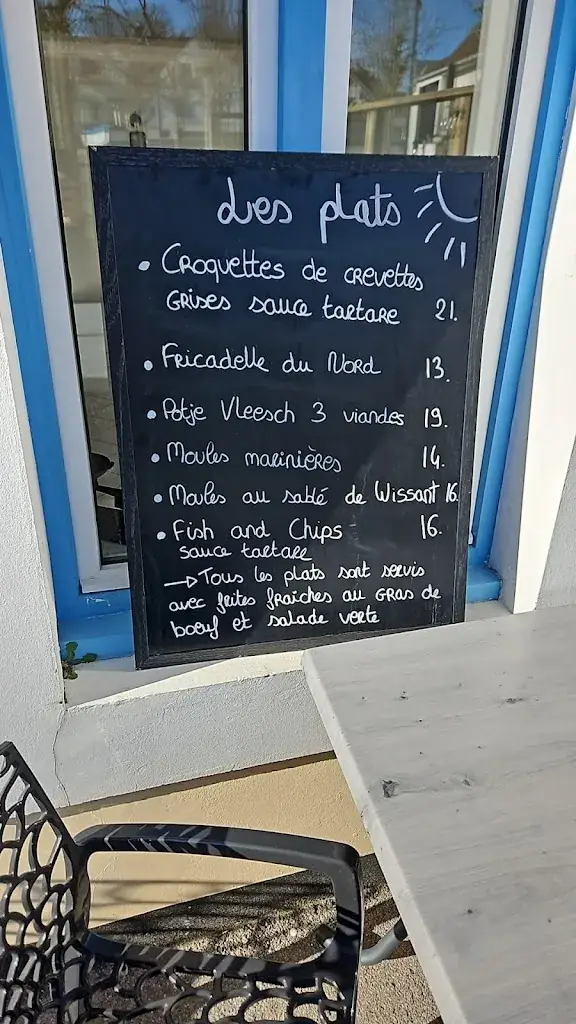 Les plats
• Croquettes de crevettes
Grises sauce tartare 21.
• Fricadelle du Nord 13.
• Potje Vleesch 3 viandes 19.
• Moules marinières 14.
• Moules au sablé de Wissant 16.
• Fish and Chips 16.
sauce tartare
→ Tous les plats sont servis
avec frites fraîches au gras de
boeuf et salade verte